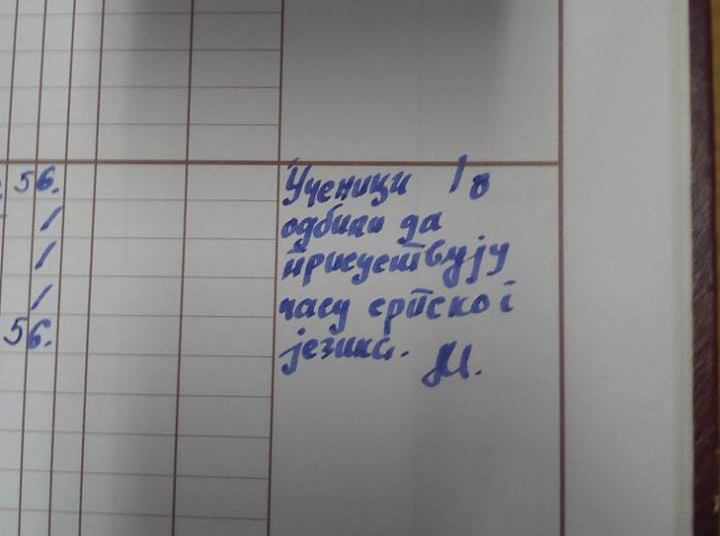 56. Ученици Iв
/ одбили да
/ присуствују
/ часу српског
56. језика. М.